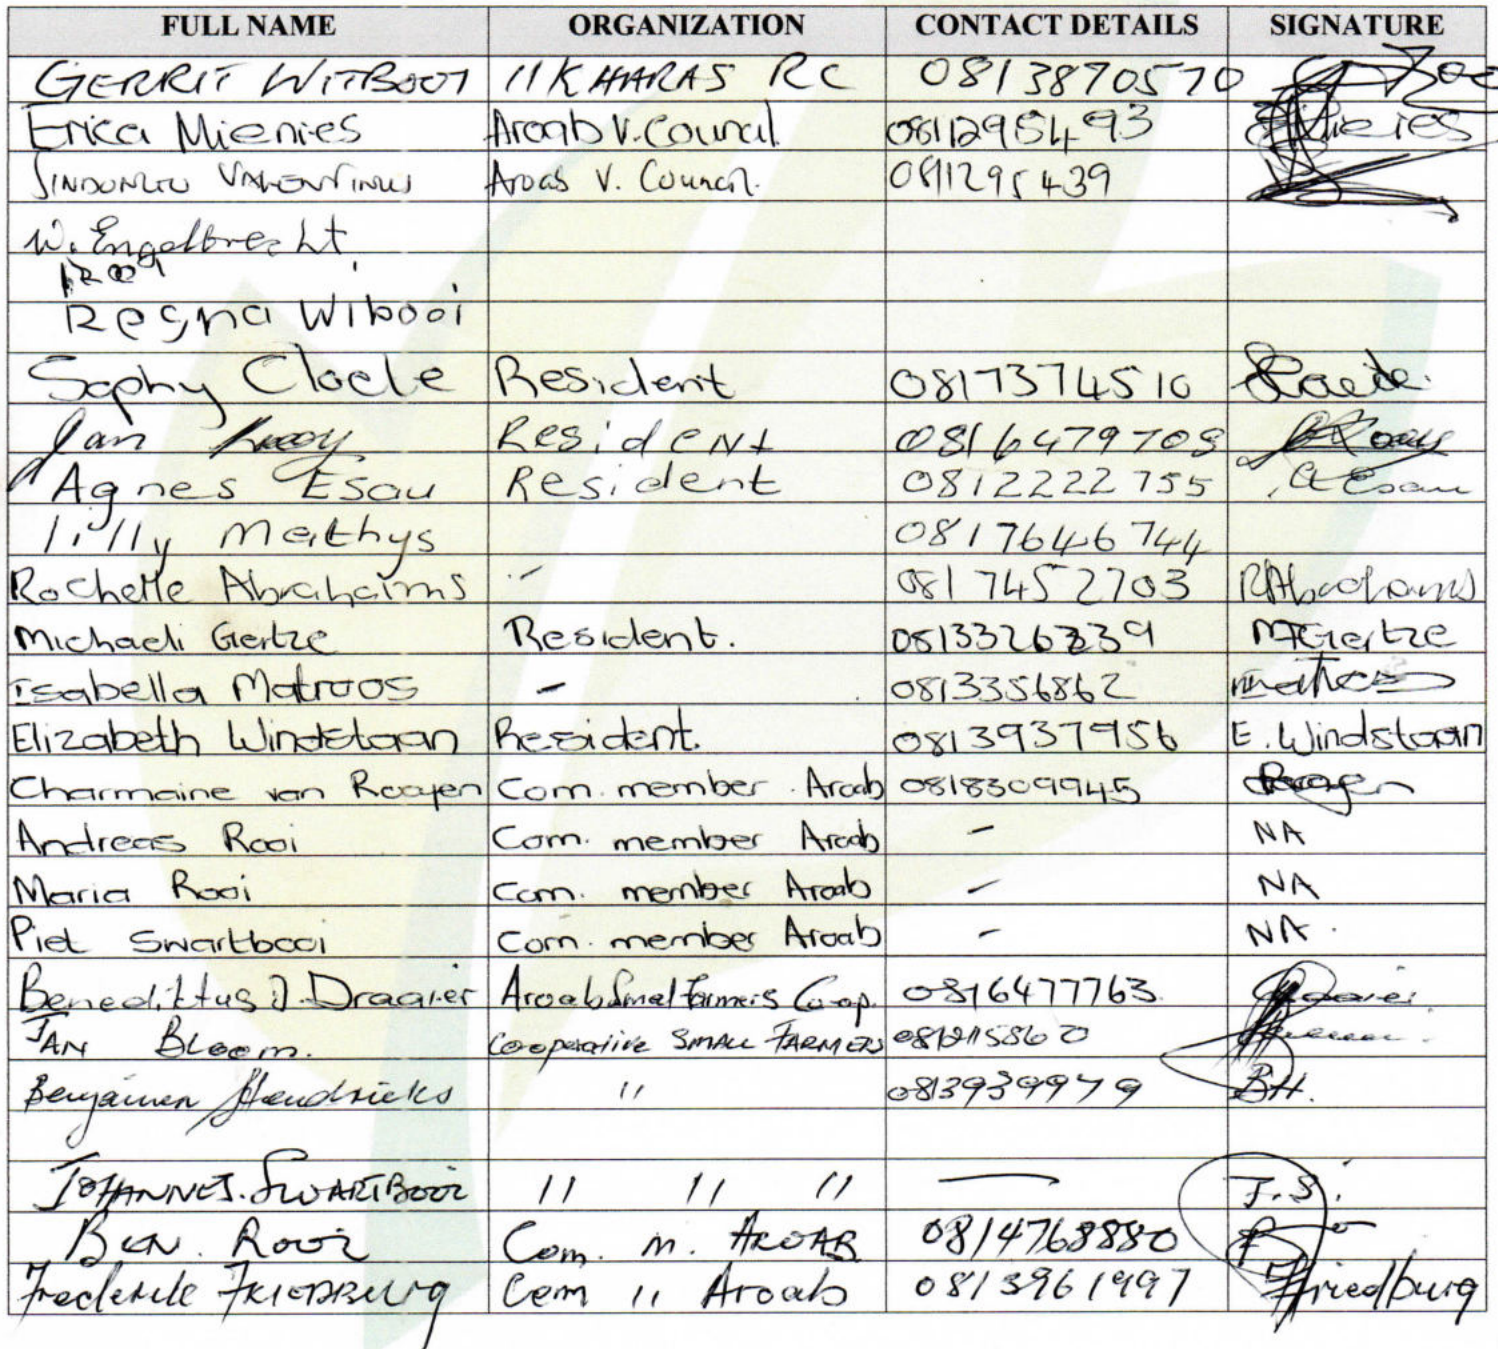 FULL NAME ORGANIZATION CONTACT DETAILS SIGNATURE
GERRIT WITBOOI //KHARAS RC 0813870570
Erica Mienies Aroab V. Council 0811295493 Mienies
Aroab V. Council. 0811295439
W. Engelbrecht
Regina Wibooi
Sophy Cloete Resident 0817374510 Cloete
Jan Rooy Resident 0816479708 Rooy
Agnes Esau Resident 0812222755 A Esau
Lilly Mathys 0817646744
Rochelle Abrahaims - 0817452703 R Abrahams
Michaeli Gertze Resident. 081332639 M Gertze
Isabella Matroos - 0813356862
Elizabeth Windstaan Resident. 0813937956 E. Windstaan
Charmaine van Rooyen Com. member Aroab 0818309945 Rooyen
Andreas Rooi Com. member Aroab - NA
Maria Rooi Com. member Aroab - NA
Piet Swartbooi Com. member Aroab - NA.
Benedittus J. Draaier Aroab Smal farmers Co-op. 0816477763
JAN Bloem. Cooperative SMALL FARMERS 0812115860
Benjamen Hendricks " 0813939979 B.H.
JOHANNES. SWARTBOOI " " " — J.S.
Ben. Rooi Com. m. AROAB 0814768880
Frederik FRIEDBURG Com " Aroab 0813961997 Friedburg